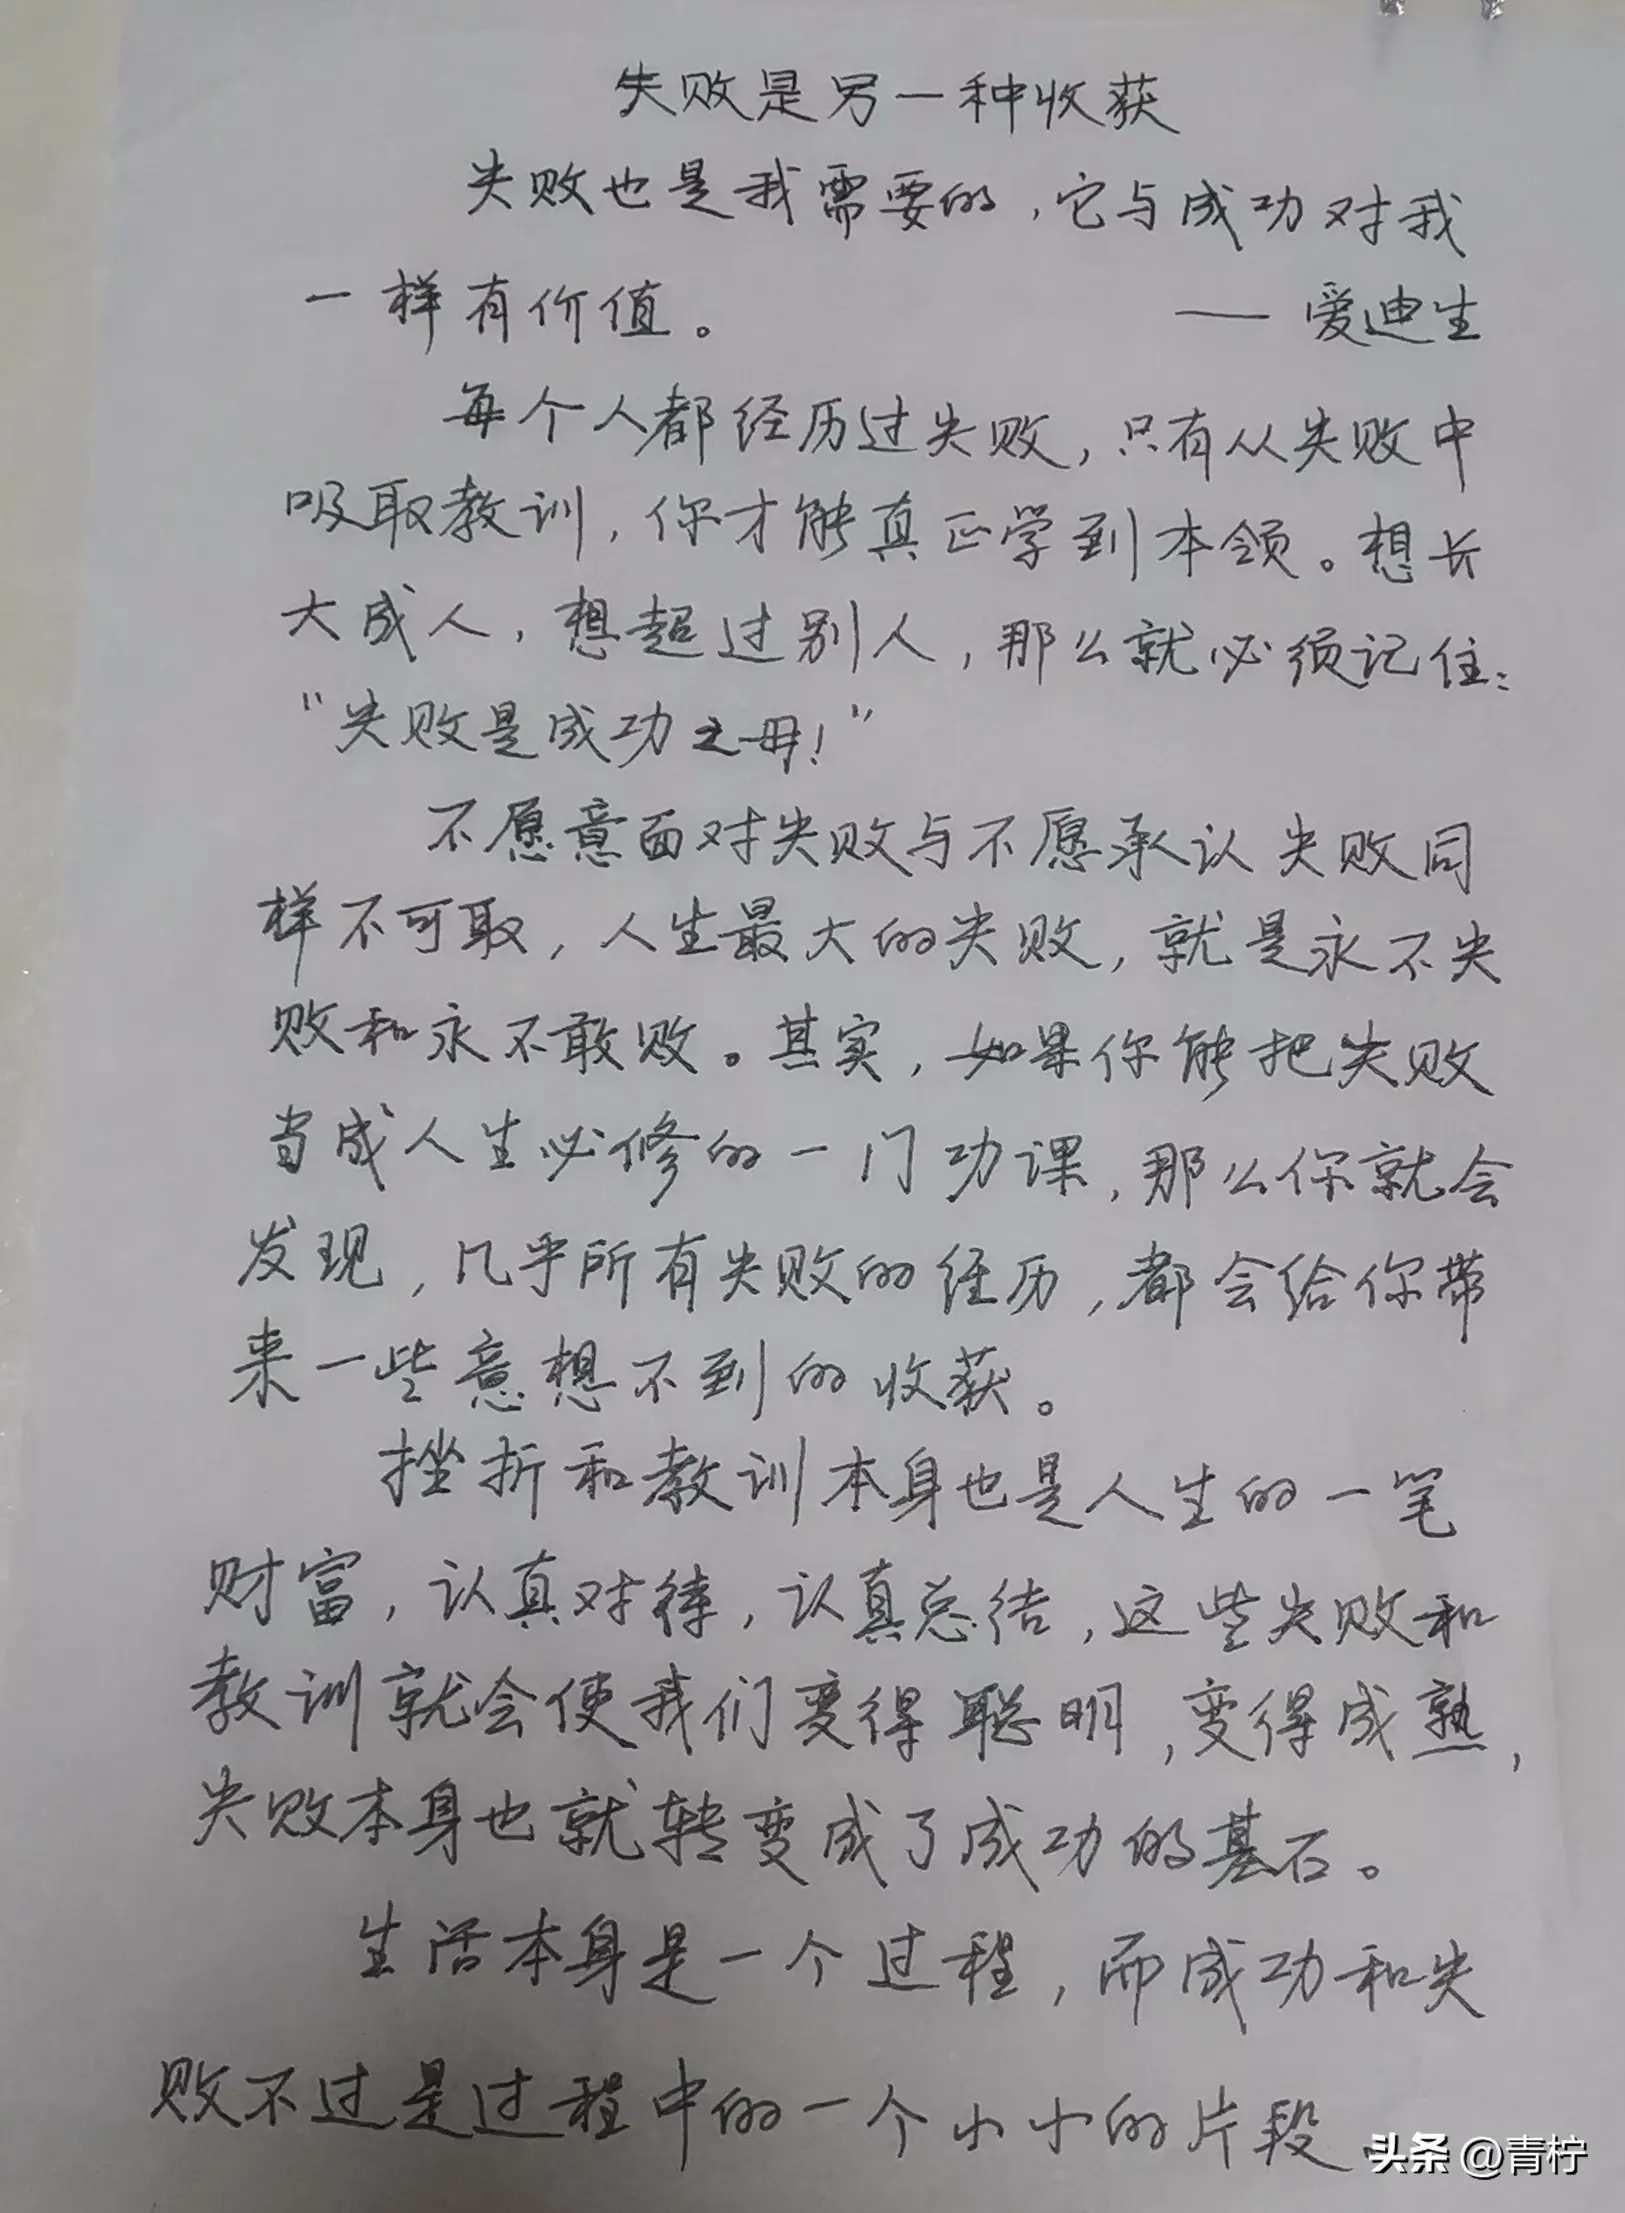 失败是另一种收获
失败也是我需要的，它与成功对我
一样有价值。 —— 爱迪生
每个人都经历过失败，只有从失败中
吸取教训，你才能真正学到本领。想长
大成人，想超过别人，那么就必须记住：
“失败是成功之母！”
不愿意面对失败与不愿承认失败同
样不可取，人生最大的失败，就是永不失
败和永不敢败。其实，如果你能把失败
当成人生必修的一门功课，那么你就会
发现，几乎所有失败的经历，都会给你带
来一些意想不到的收获。
挫折和教训本身也是人生的一笔
财富，认真对待，认真总结，这些失败和
教训就会使我们变得聪明，变得成熟，
失败本身也就转变成了成功的基石。
生活本身是一个过程，而成功和失
败不过是过程中的一个小小的片段
头条 @青柠